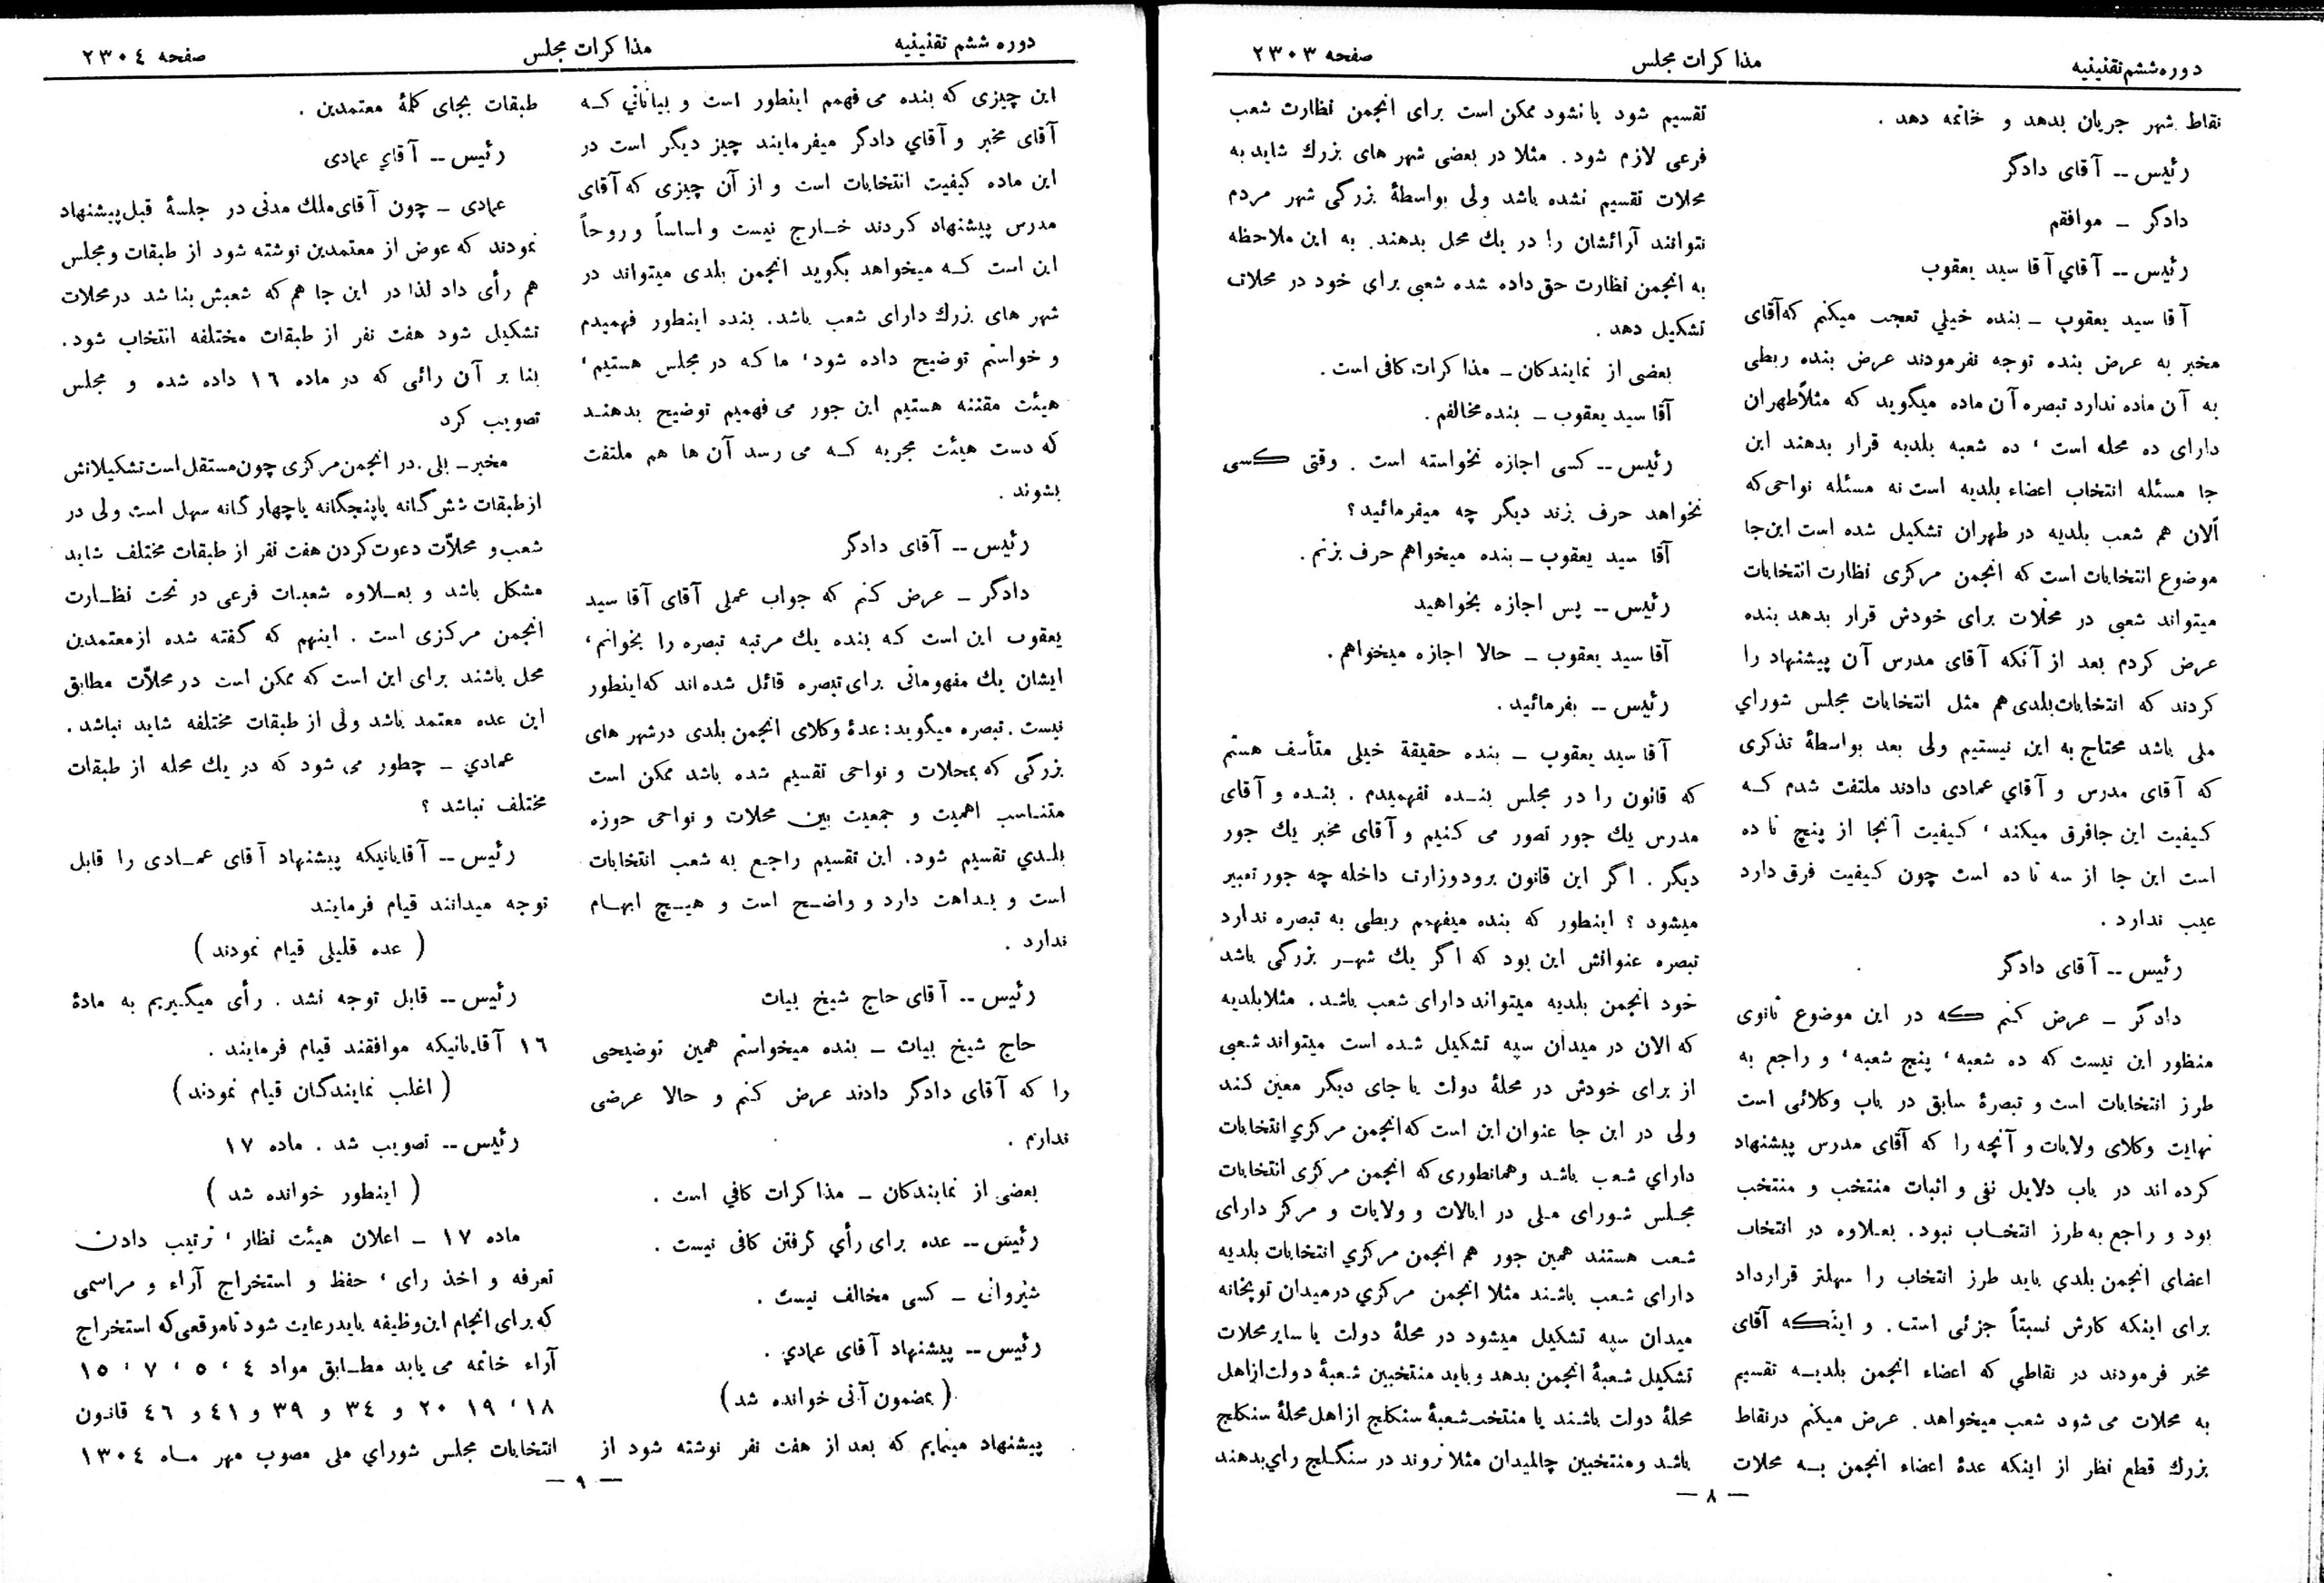 دوره ششم تقنینیه
مذاکرات مجلس
صفحه ۲۳۰۳
نقاط شهر جریان بدهد و خاتمه دهد .
رئیس -- آقای دادگر
دادگر - موافقم
رئیس -- آقاي آقا سید یعقوب
آقا سید یعقوب - بنده خیلي تعجب میکنم که آقای
مخبر به عرض بنده توجه نفرمودند عرض بنده ربطی
به آن ماده ندارد تبصره آن ماده میگوید که مثلاً طهران
دارای ده محله است ، ده شعبه بلدیه قرار بدهند این
جا مسئله انتخاب اعضاء بلدیه است نه مسئله نواحی که
الان هم شعب بلدیه در طهران تشکیل شده است این جا
موضوع انتخابات است که انجمن مرکزی نظارت انتخابات
میتواند شعبی در محلات برای خودش قرار بدهد بنده
عرض کردم بعد از آنکه آقای مدرس آن پیشنهاد را
کردند که انتخابات بلدی هم مثل انتخابات مجلس شورای
ملی باشد محتاج به این نیستیم ولی بعد بواسطهٔ تذکری
که آقای مدرس و آقاي عمادی دادند ملتفت شدم کـه
کیفیت این جا فرق میکند ، کیفیت آنجا از پنج تا ده
است این جا از سه تا ده است چون کیفیت فرق دارد
عیب ندارد .
رئیس -- آقای دادگر
دادگر - عرض کنم که در این موضوع ثانوی
منظور این نیست که ده شعبه ، پنج شعبه ، و راجع به
طرز انتخابات است و تبصرهٔ سابق در باب وکلائی است
نهایت وکلای ولایات و آنچه را که آقای مدرس پیشنهاد
کرده اند در باب دلایل نفی و اثبات منتخب و منتخب
بود و راجع به طرز انتخـاب نبود. بعـلاوه در انتخاب
اعضای انجمن بلدی باید طرز انتخاب را سهلتر قرارداد
برای اینکه کارش نسبتاً جزئی است. و اینکه آقای
مخبر فرمودند در نقاطي که اعضاء انجمن بلدیـه تقسیم
به محلات می شود شعب میخواهد. عرض میکنم در نقاط
بزرك قطع نظر از اینکه عدهٔ اعضاء انجمن بـه محلات
تقسیم شود یا نشود ممکن است برای انجمن نظارت شعب
فرعی لازم شود . مثلا در بعضی شهر های بزرك شاید به
محلات تقسیم نشده باشد ولی بواسطهٔ بزرگی شهر مردم
نتوانند آرائشان را در یك محل بدهند. به این ملاحظه
به انجمن نظارت حق داده شده شعبی برای خود در محلات
تشکیل دهد .
بعضی از نمایندگان - مذاکرات کافی است .
آقا سید یعقوب - بنده مخالفم .
رئیس -- کسی اجازه نخواسته است . وقتی کسی
نخواهد حرف بزند دیگر چه میفرمائید؟
آقا سید یعقوب - بنده میخواهم حرف بزنم .
رئیس -- پس اجازه بخواهید
آقا سید یعقوب - حالا اجازه میخواهم .
رئیس -- بفرمائید .
آقا سید یعقوب - بنده حقیقة خیلی متأسف هستم
که قانون را در مجلس بنـده نفهمیدم . بنـده و آقای
مدرس یك جور تصور می کنیم و آقای مخبر یك جور
دیگر . اگر این قانون برود وزارت داخله چه جور تعبیر
میشود ؟ اینطور که بنده میفهمم ربطی به تبصره ندارد
تبصره عنوانش این بود که اگر یك شهـر بزرگی باشد
خود انجمن بلدیه میتواند دارای شعب باشـد. مثلا بلدیه
که الان در میدان سپه تشکیل شده است میتواند شعبی
از برای خودش در محلهٔ دولت یا جای دیگر معین کند
ولی در این جا عنوان این است که انجمن مرکزي انتخابات
داراي شعب باشـد و همانطوری که انجمن مرکزی انتخابات
مجـلس شـورای مـلی در ایالات و ولایات و مرکز دارای
شعب هستند همین جور هم انجمن مرکزي انتخابات بلدیه
دارای شـعب باشـند مثلا انجمن مرکزي در میدان توپخانه
میدان سپه تشکیل میشود در محلهٔ دولت یا سایر محلات
تشکیل شـعبهٔ انجمن بدهد و باید منتخبین شـعبهٔ دولت از اهل
محلهٔ دولت باشـند یا منتخب شعبهٔ سنگلج از اهل محلهٔ سنگلج
باشـد و منتخبین چالمیدان مثلا نروند در سنگـلج راي بدهند
— ۸ —
دوره ششم تقنینیه
مذاکرات مجلس
صفحه ۲۳۰٤
این چیزی که بنده می فهمم اینطور است و بیاناتي کـه
آقای مخبر و آقاي دادگر میفرمایند چیز دیگر است در
این ماده کیفیت انتخابات است و از آن چیزی که آقای
مدرس پیشنهاد کردند خـارج نیست و اساساً و روحاً
این است کـه میخواهد بگوید انجمن بلدی میتواند در
شهر های بزرك دارای شعب باشد. بنده اینطور فهمیدم
و خواستم توضیح داده شود ، ما که در مجلس هستیم ،
هیئت مقننه هستیم این جور می فهمیم توضیح بدهنـد
که دست هیئت مجریه کـه می رسد آن ها هم ملتفت
بشوند .
رئیس -- آقای دادگر
دادگر - عرض کنم که جواب عملی آقای آقا سید
یعقوب این است که بنده یك مرتبه تبصره را بخوانم ،
ایشان یك مفهوماتی برای تبصره قائل شده اند که اینطور
نیست . تبصره میگوید : عدهٔ وکلای انجمن بلدی در شهر های
بزرگی که بمحلات و نواحی تقسیم شده باشد ممکن است
متنـاسب اهمیت و جمعیت بین محلات و نواحی حوزه
بلـدي تقسیم شود. این تقسیم راجـع به شعب انتخابات
است و بـداهت دارد و واضـح است و هیـچ ابهـام
ندارد .
رئیس -- آقای حاج شیخ بیات
حاج شیخ بیات - بنده میخواستم همین توضیحی
را که آقای دادگر دادند عرض کنم و حالا عرضی
ندارم .
بعضی از نمایندگان - مذاکرات کافي است .
رئیس -- عده برای رأي گرفتن کافی نیست .
شیروانی - کسی مخالف نیست .
رئیس -- پیشنهاد آقای عمادي .
( بمضمون آتی خوانده شد )
پیشنهاد مینمایم که بعد از هفت نفر نوشته شود از
طبقات بجای کلمهٔ معتمدین .
رئیس -- آقاي عمادی
عمادی - چون آقای ملك مدنی در جلسهٔ قبل پیشنهاد
نمودند که عوض از معتمدین نوشته شود از طبقات و مجلس
هم رأی داد لذا در این جا هم که شعبش بنا شد در محلات
تشکیل شود هفت نفر از طبقات مختلفه انتخاب شود .
بنا بر آن رائی که در ماده ۱٦ داده شده و مجلس
تصویب کرد
مخبر - بلی . در انجمن مرکزی چون مستقل است تشکیلاتش
از طبقات شش گانه یا پنجگانه یا چهار گانه سهل است ولی در
شعب و محلاّت دعوت کردن هفت نفر از طبقات مختلف شاید
مشکل باشد و بعـلاوه شعبـات فرعی در تحت نظـارت
انجمن مرکزی است . اینهم که گفته شده از معتمدین
محل باشند برای این است که ممکن است در محلاّت مطابق
این عده معتمد باشد ولی از طبقات مختلفه شاید نباشد .
عمادي - چطور می شود که در یك محله از طبقات
مختلف نباشد ؟
رئیس -- آقایانیکه پیشنهاد آقای عمـادی را قابل
توجه میدانند قیام فرمایند
( عده قلیلی قیام نمودند )
رئیس -- قابل توجه نشد . رأی میگیریم به مادهٔ
۱٦ آقایانیکه موافقند قیام فرمایند .
( اغلب نمایندگان قیام نمودند )
رئیس -- تصویب شد . ماده ۱۷
( اینطور خوانده شد )
ماده ۱۷ - اعلان هیئت نظار ، ترتیب دادن
تعرفه و اخذ رای ، حفظ و استخراج آراء و مراسمی
که برای انجام این وظیفه باید رعایت شود تا موقعی که استخراج
آراء خاتمه می یابد مطـابق مواد ٤ ، ٥ ، ۷ ، ۱٥
۱۸ ، ۱۹ ۲۰ و ۳٤ و ۳۹ و ٤۱ و ٤٦ قانون
انتخابات مجلس شوراي ملی مصوب مهر مـاه ۱۳۰٤
— ۹ —